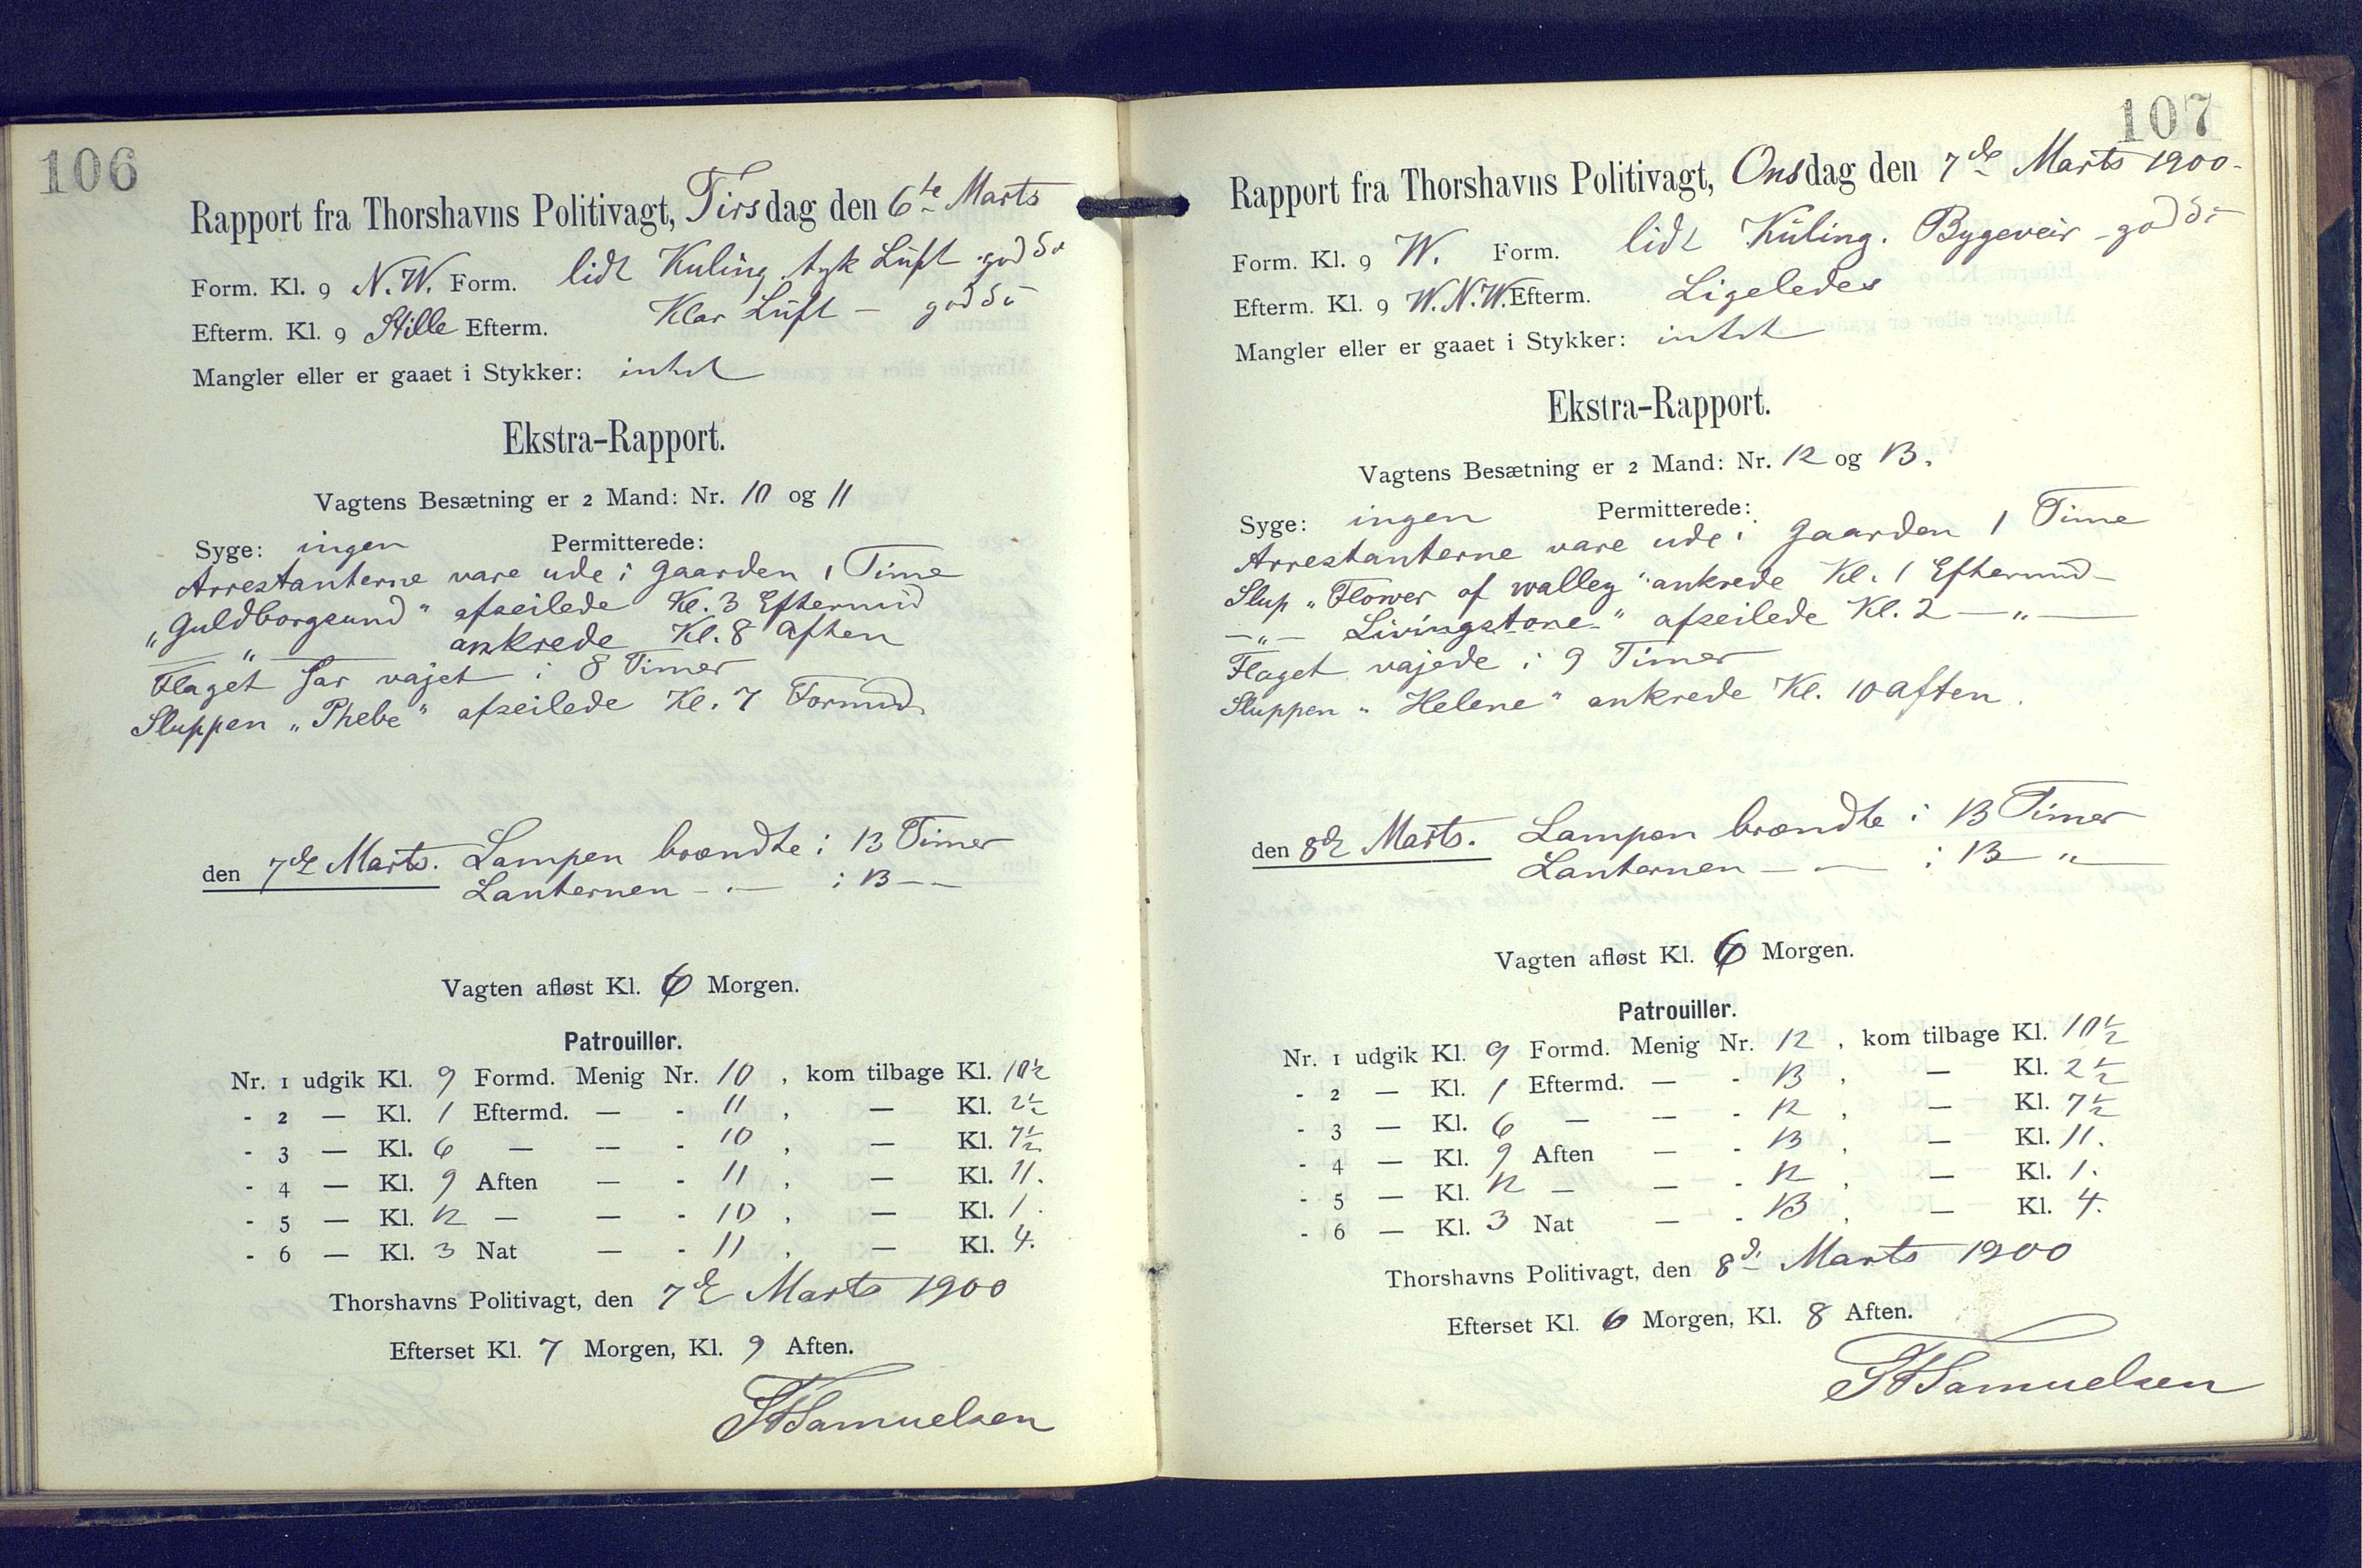 106
Rapport fra Thorshavns Politivagt, Tirsdag den 6te Marts
Form. Kl. 9 N.W. Form. lidt Kuling tyk Luft god Sö
Efterm. Kl. 9 Stille Efterm. Klar Luft — god Sö
Mangler eller er gaaet i Stykker: intet
Ekstra-Rapport.
Vagtens Besætning er 2 Mand: Nr. 10 og 11
Syge: ingen Permitterede:
Arrestanterne vare ude i Gaarden 1 Time
"Guldborgsund" afseilede Kl. 3 Eftermid
— " — ankrede Kl. 8 Aften
Flaget har vajet i 8 Timer
Sluppen "Phebe" afseilede Kl. 7 Formid.
den 7de Marts. Lampen brændte i 13 Timer
Lanternen - . — i 13 - -
Vagten afløst Kl. 6 Morgen.
Patrouiller.
Nr. 1 udgik Kl. 9 Formd. Menig Nr. 10 , kom tilbage Kl. 10½
- 2 — Kl. 1 Eftermd. — - 11 , — Kl. 2½
- 3 — Kl. 6 — — - 10 , — Kl. 7½
- 4 — Kl. 9 Aften — - 11 , — Kl. 11.
- 5 — Kl. 12 — — - 10 , — Kl. 1.
- 6 — Kl. 3 Nat — - 11 , — Kl. 4.
Thorshavns Politivagt, den 7de Marts 1900
Efterset Kl. 7 Morgen, Kl. 9 Aften.
Samuelsen
107
Rapport fra Thorshavns Politivagt, Onsdag den 7de Marts 1900-
Form. Kl. 9 W. Form. lidt Kuling. Bygeveir - god Sö
Efterm. Kl. 9 W.N.W. Efterm. Ligeledes
Mangler eller er gaaet i Stykker: intet
Ekstra-Rapport.
Vagtens Besætning er 2 Mand: Nr. 12 og 13.
Syge: ingen Permitterede:
Arrestanterne vare ude i Gaarden 1 Time
Slup "Flower of walley" ankrede Kl. 1 Eftermid-
— " — Livingstone" afseilede Kl. 2 — " —
Flaget vajede i 9 Timer
Sluppen "Helene" ankrede Kl. 10 Aften.
den 8de Marts. Lampen brændte i 13 Timer
Lanternen — - — i 13 — " —
Vagten afløst Kl. 6 Morgen.
Patrouiller.
Nr. 1 udgik Kl. 9 Formd. Menig Nr. 12 , kom tilbage Kl. 10½
- 2 — Kl. 1 Eftermd. — - 13 , — Kl. 2½
- 3 — Kl. 6 — — - 12 , — Kl. 7½
- 4 — Kl. 9 Aften — - 13 , — Kl. 11.
- 5 — Kl. 12 — — - 12 , — Kl. 1.
- 6 — Kl. 3 Nat — - 13 , — Kl. 4.
Thorshavns Politivagt, den 8d. Marts 1900
Efterset Kl. 6 Morgen, Kl. 8 Aften.
Samuelsen